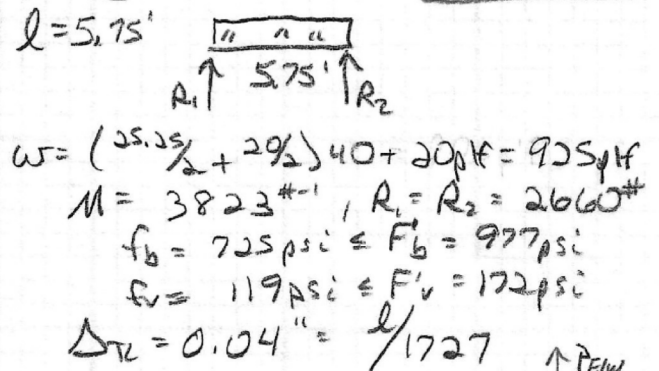 l=5.75'
5.75'
R₁ R₂
w= (25.25/2 + 20/2)40+20plf = 925plf
M= 3823#-', R₁=R₂= 2660#
f_b = 725psi ≤ F'_b = 977psi
f_v = 119psi ≤ F'_v = 172psi
Δ_TL = 0.04" = l/1727